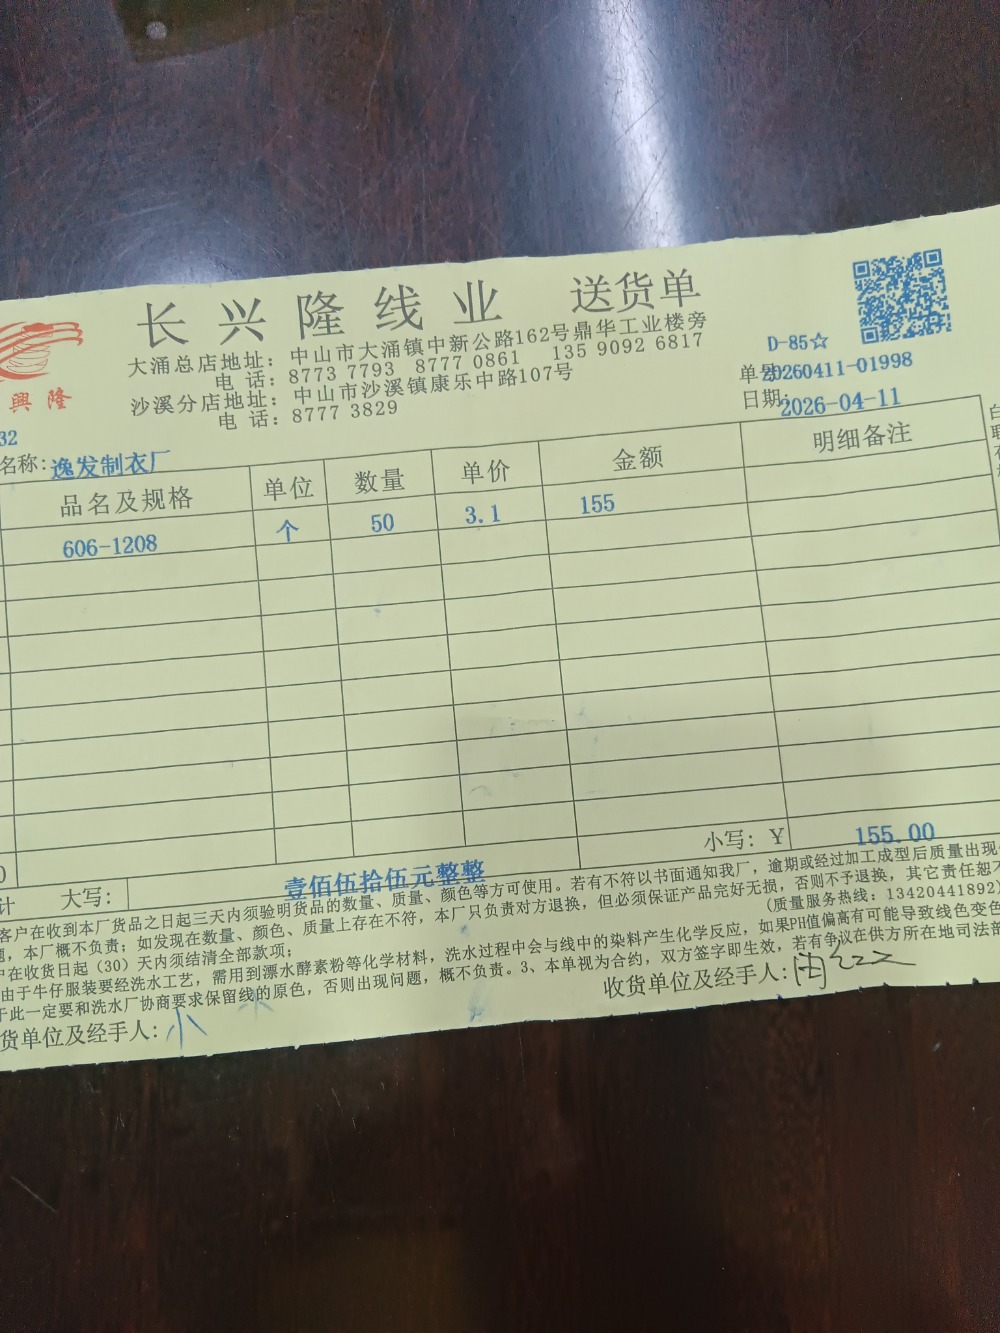 长兴隆线业 送货单
大涌总店地址：中山市大涌镇中新公路162号鼎华工业楼旁
电 话：8773 7793 8777 0861 135 9092 6817
沙溪分店地址：中山市沙溪镇康乐中路107号
电 话：8777 3829
興隆
D-85☆
单号:20260411-01998
日期:2026-04-11
32
名称:逸发制衣厂
品名及规格 单位 数量 单价 金额 明细备注
606-1208 个 50 3.1 155
小写：¥ 155.00
计 大写： 壹佰伍拾伍元整整
客户在收到本厂货品之日起三天内须验明货品的数量、质量、颜色等方可使用。若有不符以书面通知我厂，逾期或经过加工成型后质量出现
，本厂概不负责；如发现在数量、颜色、质量上存在不符，本厂只负责对方退换，但必须保证产品完好无损，否则不予退换，其它责任恕不
户在收货日起（30）天内须结清全部款项； (质量服务热线：13420441892)
由于牛仔服装要经洗水工艺，需用到漂水酵素粉等化学材料，洗水过程中会与线中的染料产生化学反应，如果PH值偏高有可能导致线色变色
于此一定要和洗水厂协商要求保留线的原色，否则出现问题，概不负责。3、本单视为合约，双方签字即生效，若有争议在供方所在地司法部
货单位及经手人: 小 收货单位及经手人: